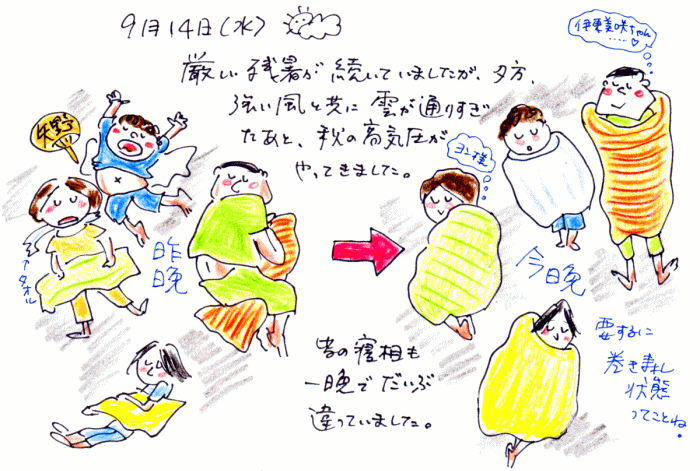 9月14日(水)
厳しい残暑が続いていましたが、夕方、
強い風と共に雲が通りすぎ
たあと、秋の高気圧が
やってきました。
伊東美咲ちゃん
……♡
矢野
ヨン様
昨晩
タオル
今晩
皆の寝相も
一晩でだいぶ
違っていました。
要するに
巻き寿し
状態
ってことね。